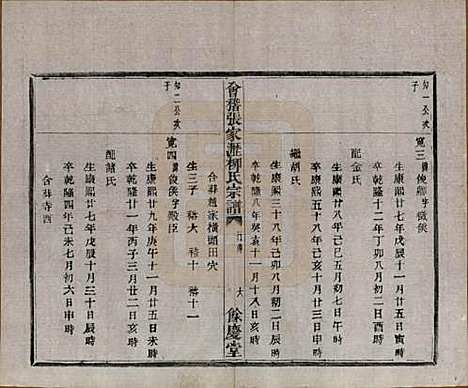 知一公次
子
寬三諱俊卿字啟侯
生康熙廿七年戊辰十一月廿五日寅時
卒乾隆十二年丁卯八月初二日酉時
配金氏
生康熙廿八年己巳五月初七日午時
卒康熙五十八年己亥十月廿三日申時
繼胡氏
生康熙三十八年己卯八月初二日辰時
卒乾隆八年癸亥十一月十八日亥時
合葬趙家橫頭田穴
生三子 裕大 裕十 裕十一
會稽張家瀝柳氏宗譜
餘慶堂
知二公次
子
寬四諱俊侯字殿臣
生康熙廿九年庚午十一月廿五日辰時
卒乾隆廿一年丙子三月廿二日子時
配諸氏
生康熙廿七年戊辰十一月三十日辰時
卒乾隆四年己未七月初六日申時
合葬寺西